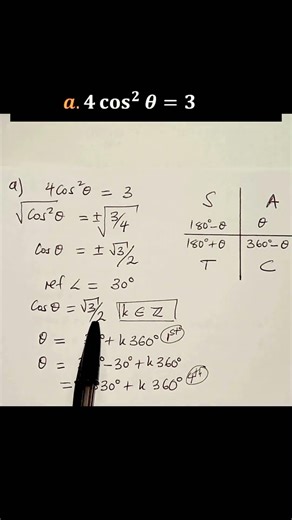 a. 4 cos² θ = 3
a) 4Cos²θ = 3
√Cos²θ = ±√3/4
Cosθ = ±√3/2
ref ∠ = 30°
Cosθ = √3/2 k ∈ ℤ
θ = 0° + k360° 1st
θ = 0° - 30° + k360°
= 30° + k360° 4th
S A
180°-θ θ
180°+θ 360°-θ
T C